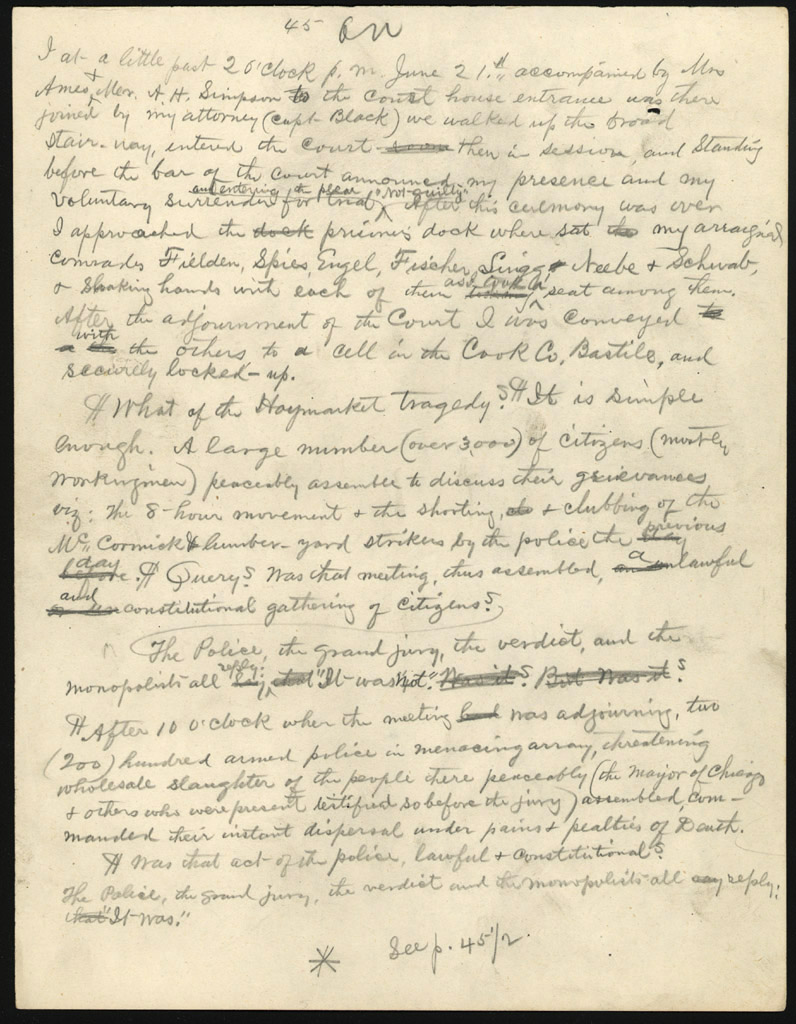 45
I at a little past 2 O'clock p.m. June 21st accompanied by Mrs
Ames, Mer. A.H. Simpson to the court house entrance was there
joined by my attorney (capt. Black) we walked up the broad
stair-way, entered the Court-room then in session, and Standing
before the bar of the Court announced my presence and my
and entering the plea "not guilty"
voluntary surrender for trial After this ceremony was over
I approached the dock prisoners dock where sat the my arraigned
comrades Fielden, Spies, Engel, Fischer, Lingg & Neebe & Schwab,
& shaking hands with each of them as I took a seat among them.
After the adjournment of the Court I was conveyed to
with
the others to a cell in the Cook Co. Bastile, and
securely locked-up.
What of the Haymarket tragedy? It is simple
enough. A large number (over 3,000) of citizens (mostly
workingmen) peaceably assemble to discuss their grievances
viz: the 8-hour movement & the shooting, & clubbing of the
McCormick & lumber-yard strikers by the police the previous
day
before. Query? Was that meeting, thus assembled, a lawful
and
constitutional gathering of citizens?
The Police, the grand jury, the verdict, and the
monopolists all reply: that "It was not." Was it? But Was it?
After 10 O'clock when the meeting had was adjourning, two
(200) hundred armed police in menacing array, threatening
wholesale slaughter of the people there peaceably (the Mayor of Chicago
& others who were present testified so before the jury) assembled, com-
manded their instant dispersal under pains & pealties of Death.
Was that act of the police, lawful & constitutional?
The Police, the grand jury, the verdict and the monopolists all say reply:
that "It Was."
See p. 45 1/2.